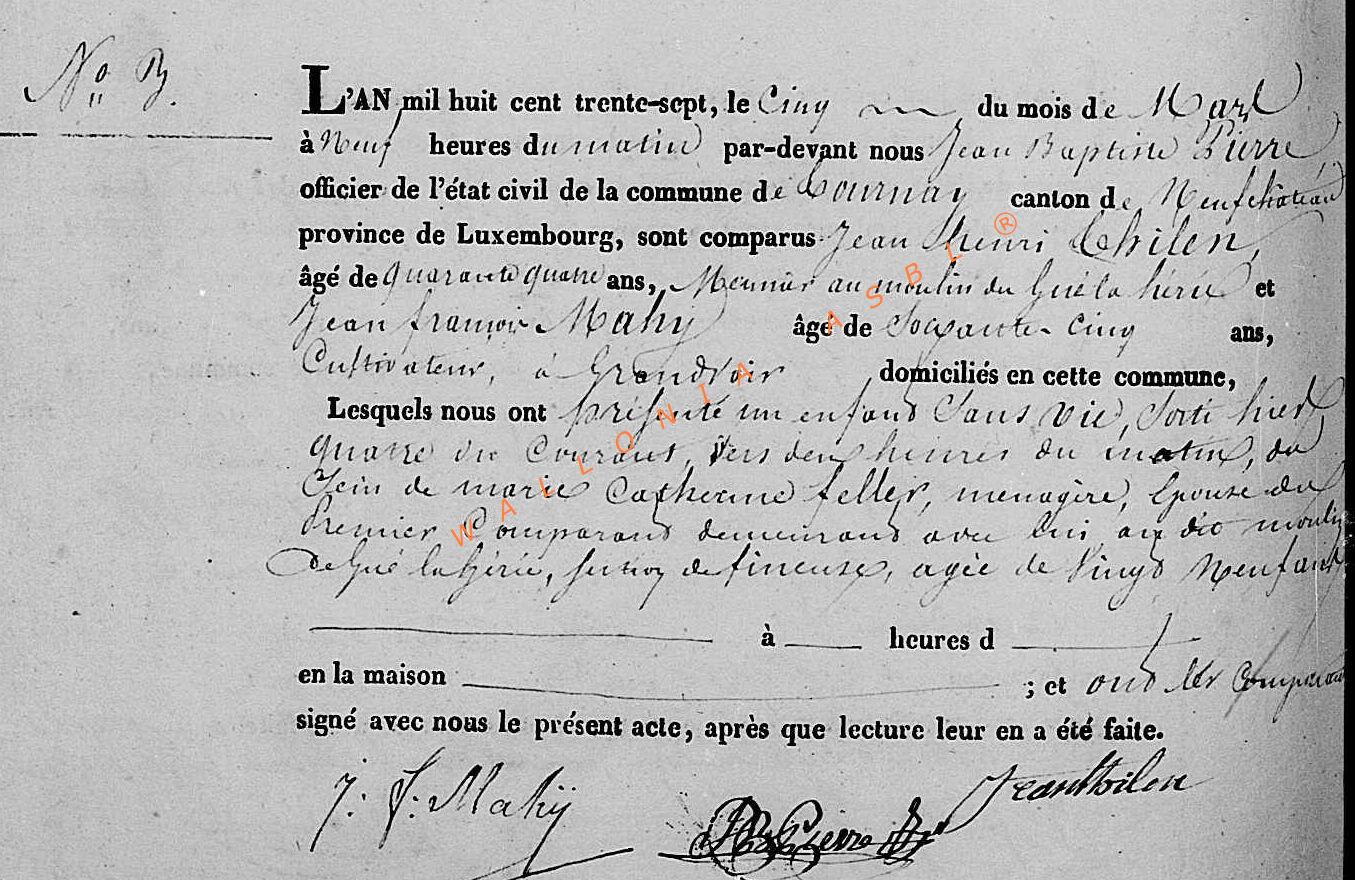 No 3.
L'AN mil huit cent trente-sept, le Cinq du mois de Mars
à Neuf heures du matin par-devant nous Jean Baptiste Pierre,
officier de l'état civil de la commune de Tournay canton de Neufchateau
province de Luxembourg, sont comparus Jean henri Thilen,
âgé de quarante quatre ans, Meunier au moulin du Gué la hérie et
Jean françois Mahy âgé de Soixante Cinq ans,
Cultivateur, à Grandvoir domiciliés en cette commune,
Lesquels nous ont présenté un enfant Sans vie, Sorti hier
quatre du Courant, vers deux heures du matin, du
Sein de marie Catherine feller, menagère, Epouse du
Premier Comparant demeurant avec lui au dit moulin
de Gué la hérie, section de fineuse, agée de vingt Neuf ans
à heures d
en la maison ; et ont les Comparants
signé avec nous le présent acte, après que lecture leur en a été faite.
J. f. Mahij Jean thilen
JB Pierre
WALLONIA ASBL ®